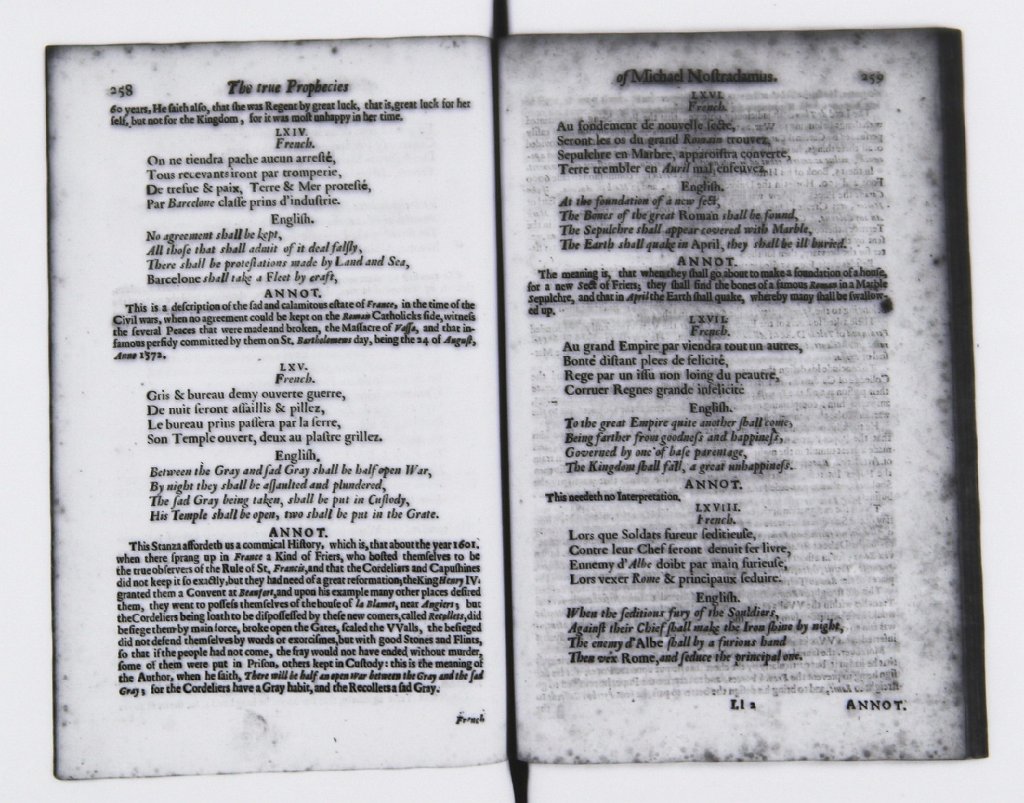 258 The true Prophecies
60 years, He saith also, that she was Regent by great luck, that is, great luck for her
self, but not for the Kingdom, for it was most unhappy in her time.
LXIV.
French.
On ne tiendra pache aucun arresté,
Tous recevants iront par tromperie,
De trefue & paix, Terre & Mer protesté,
Par Barcelone classe prins d'industrie.
English.
No agreement shall be kept,
All those that shall admit of it deal falsly,
There shall be protestations made by Land and Sea,
Barcelone shall take a Fleet by craft,
ANNOT.
This is a description of the sad and calamitous estate of France, in the time of the
Civil wars, when no agreement could be kept on the Roman Catholicks side, witness
the several Peaces that were made and broken, the Massacre of Vassa, and that in-
famous persidy committed by them on St. Bartholomews day, being the 24 of August,
Anno 1572.
LXV.
French.
Gris & bureau demy ouverte guerre,
De nuit seront assaillis & pillez,
Le bureau prins passera par la serre,
Son Temple ouvert, deux au plastre grillez.
English,
Between the Gray and sad Gray shall be half open War,
By night they shall be assaulted and plundered,
The sad Gray being taken, shall be put in Custody,
His Temple shall be open, two shall be put in the Grate.
ANNOT.
This Stanza affordeth us a commical History, which is, that about the year 1601.
when there sprang up in France a Kind of Friers, who bosted themselves to be
the true observers of the Rule of St, Francis, and that the Cordeliers and Capushines
did not keep it so exactly, but they had need of a great reformation; the King Henry IV.
granted them a Convent at Beaufort, and upon his example many other places desired
them, they went to possess themselves of the house of la Blamet, near Angiers; but
the Cordeliers being loath to be dispossessed by these new comers, called Recollets, did
besiege them by main force, broke open the Gates, scaled the VValls, the besieged
did not defend themselves by words or exorcismes, but with good Stones and Flints,
so that if the people had not come, the fray would not have ended without murder,
some of them were put in Prison, others kept in Custody: this is the meaning of
the Author, when he saith, There will be half an open War between the Gray and the sad
Gray; for the Cordeliers have a Gray habit, and the Recollets a sad Gray.
French
of Michael Nostradamus. 259
LXVI.
French.
Au fondement de nouvelle secte,
Seront les os du grand Romain trouvez,
Sepulchre en Marbre, apparoistra converte,
Terre trembler en Auril mal enfeuvez.
English.
At the foundation of a new sect,
The Bones of the great Roman shall be found,
The Sepulchre shall appear covered with Marble,
The Earth shall quake in April, they shall be ill buried.
ANNOT.
The meaning is, that when they shall go about to make a foundation of a house,
for a new Sect of Friers; they shall find the bones of a famous Roman in a Marble
Sepulchre, and that in April the Earth shall quake, whereby many shall be swallow-
ed up.
LXVII.
French.
Au grand Empire par viendra tout un autres,
Bonté distant plees de felicité,
Rege par un issu non loing du peautre,
Corruer Regnes grande infelicite
English.
To the great Empire quite another shall come,
Being farther from goodness and happiness,
Governed by one of base parentage,
The Kingdom shall fall, a great unhappiness.
ANNOT.
This needeth no Interpretation.
LXVIII.
French.
Lors que Soldats fureur seditieuse,
Contre leur Chef feront de nuit fer livre,
Ennemy d'Albe doibt par main furieuse,
Lors vexer Rome & principaux seduire.
English.
When the seditious fury of the Souldiers,
Against their Chief shall make the Iron shine by night,
The enemy d'Albe shall by a furious hand
Then vex Rome, and seduce the principal one.
Ll 2 ANNOT.